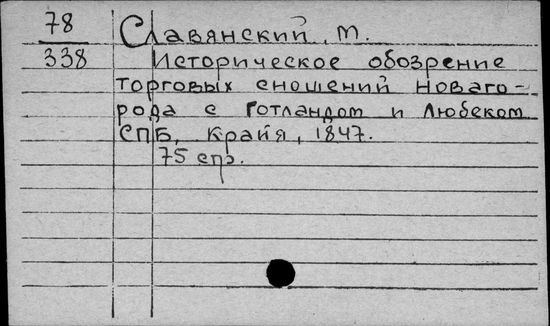 78
338
Славянский, М.
Историческое обозрение
торговых сношений Новаго-
рода с Готландом и Любеком
СПБ, Крайя, 1847.
75 стр.